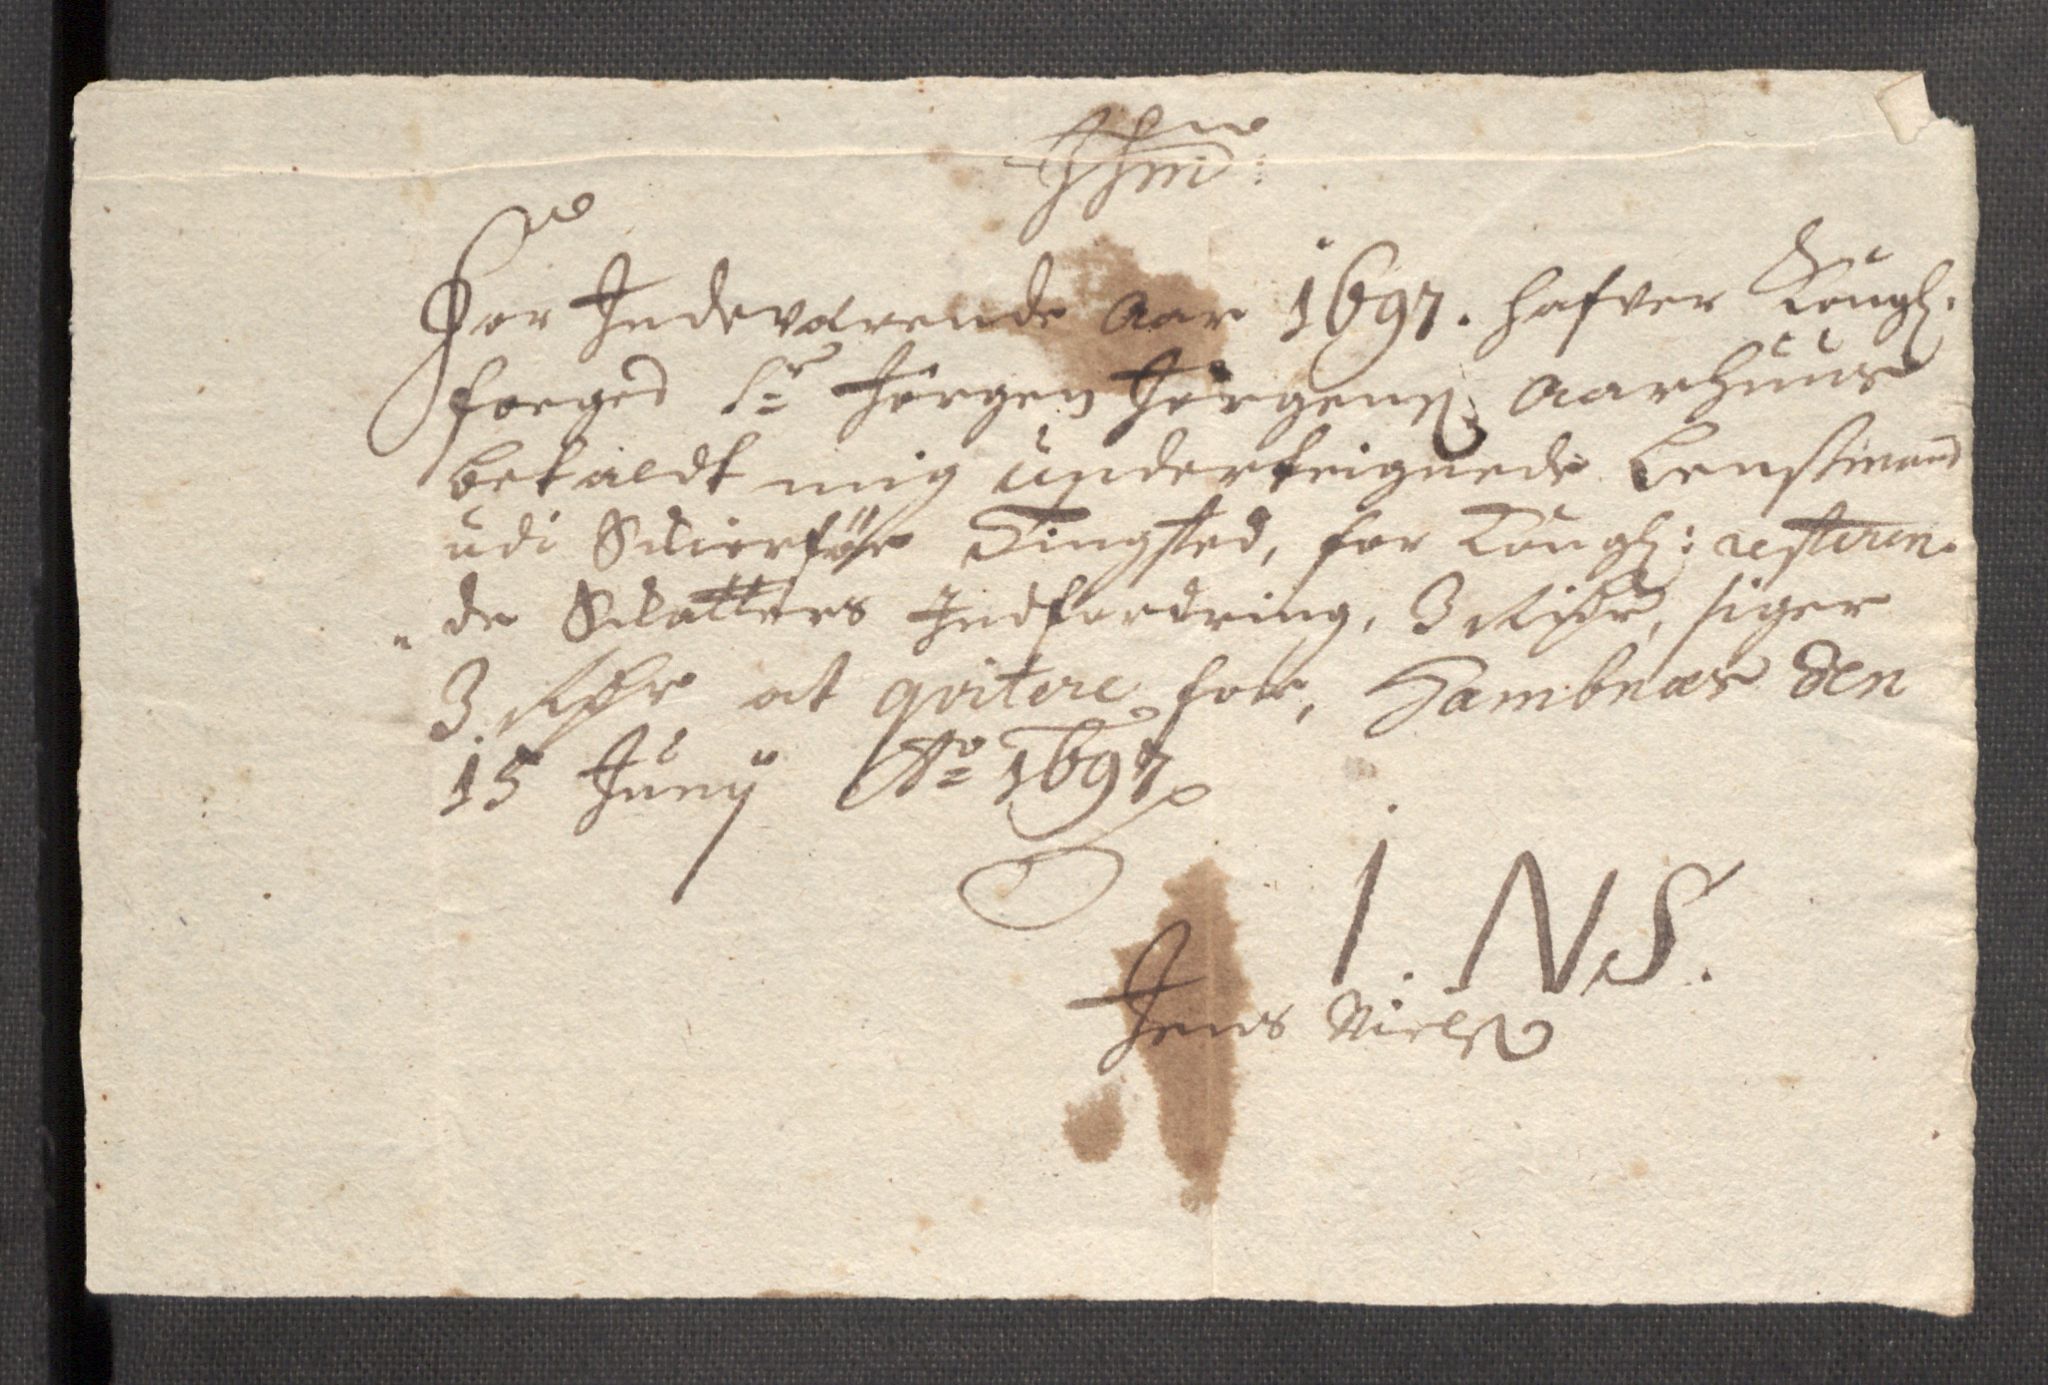 For Indeværende Aar 1697. hafver Kongl.
foeged Sr Jörgen Jörgens: Aarhuus
betaldt mig underteignede Lensmand
udi Schierför Tingsted, for Kongl: resteren-
de Schatters Indfordring, 3 Rixdr, siger
3 Rixdr at qvitere for, Hambnæs den
15 Junÿ Ao 1697
I. N S.
Jens Niels